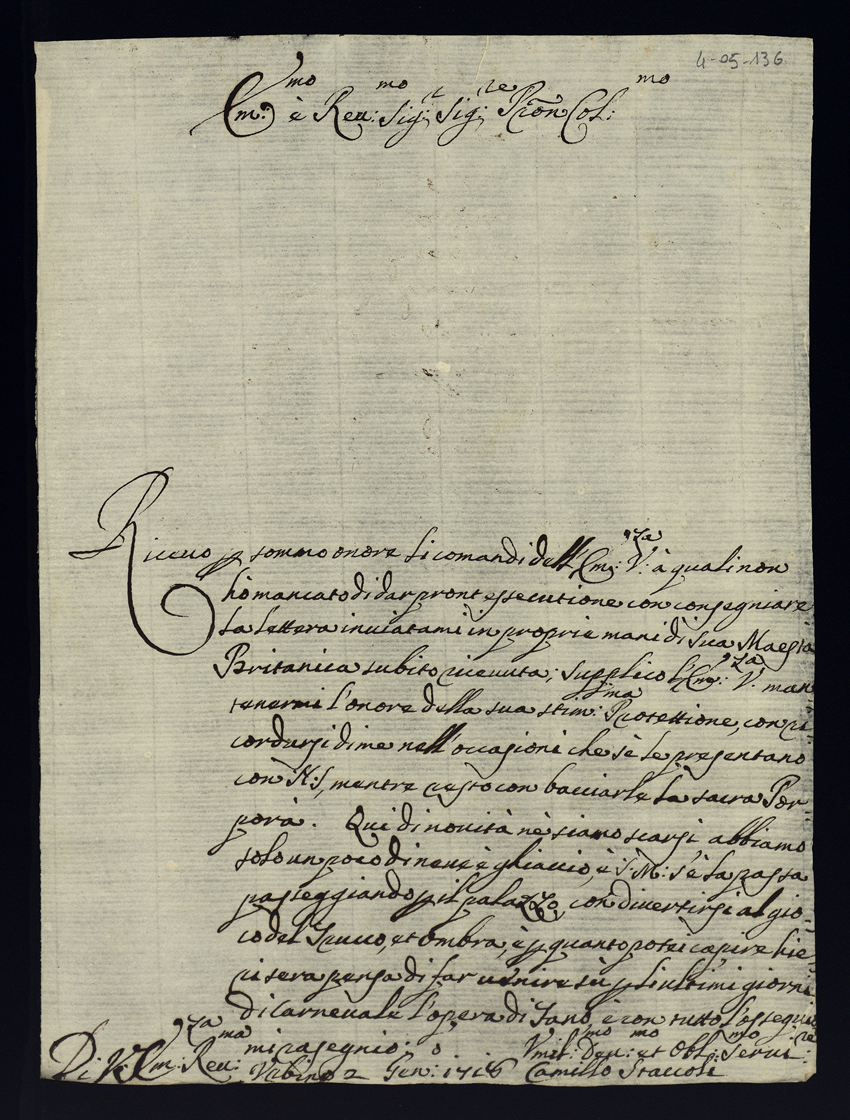 4-05-136
Em:mo è Reu:mo Sig:r Sig:re Pron Col:mo
Riceuo p sommo onore li comandi dell'Em:za V: à quali non
hò mancato di dar pront essecutione con consegniare
la lettera inuiatami in proprie mani di sua Maesta
Britanica subito riceuuta; supplico l'Em:za V. man
tenermi l'onore della sua stim:ssima Protettione, con ri
cordarsi di me nell'occasioni che sè le presentano
con N:S, mentre resto con bacciarle la sacra Por
pora. Qui di nouità nè siamo scarsi abbiamo
solo un poco di neue è ghiaccio, è S: M: s'è la passa
passeggiando p il palazzo, con divertirsi al gio
co del Trucco, et ombra, è p quanto potei capire hie
ri sera pensa di far uenire sù p li ultimi giorni
di carneuale l'opera di Fano è con tutto l'ossequio
mi rasegnio:
Di V: Em:za Reu:ma
Vrbino 2 Gen: 1718
Vmil:mo Deu:mo et Obl:mo Seru:re
Camillo Staccoli